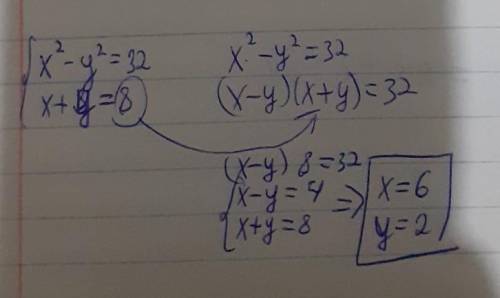 x² - y² = 32
x + y = 8
x² - y² = 32
(x - y)(x + y) = 32
(x - y) 8 = 32
x - y = 4
x + y = 8
⇒
x = 6
y = 2